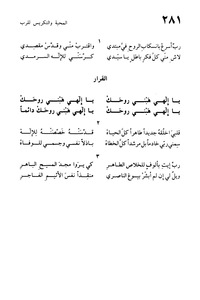 المحبة والتكريس للرب
٢٨١
١
ربّ أسرعْ بانسكابِ الروحِ في مبتدي واقتربْ منّي وقدّسْ مقصدي
لاشِ منّي كلَّ فكرٍ باطلٍ يا سيّدي كرّسَنّي للإلهِ السرمدي
القرار
يا إلهي هَبْني روحَكَ يا إلهي هَبْني روحَكَ
يا إلهي هَبْني روحَكَ يا إلهي هَبْني روحَكَ دائماً
٢
قلبيَ اخلُقهُ جديداً طاهراً كلَّ الحياة قدّسَنّهُ خصّصَنّهُ للصلاة
بعني ربّي خادماً بل مرشداً كلَّ الخطاة باذلاً نفسي وجسمي للوفاة
٣
ربّ إيتِ بألوفٍ للخلاصِ الطاهر كي يروا مجدَ المسيحِ الباهر
ويلُ لي إن لم أبشّرْ بيسوعَ الناصري منقذاً نفسَ الأثيمِ الفاجر